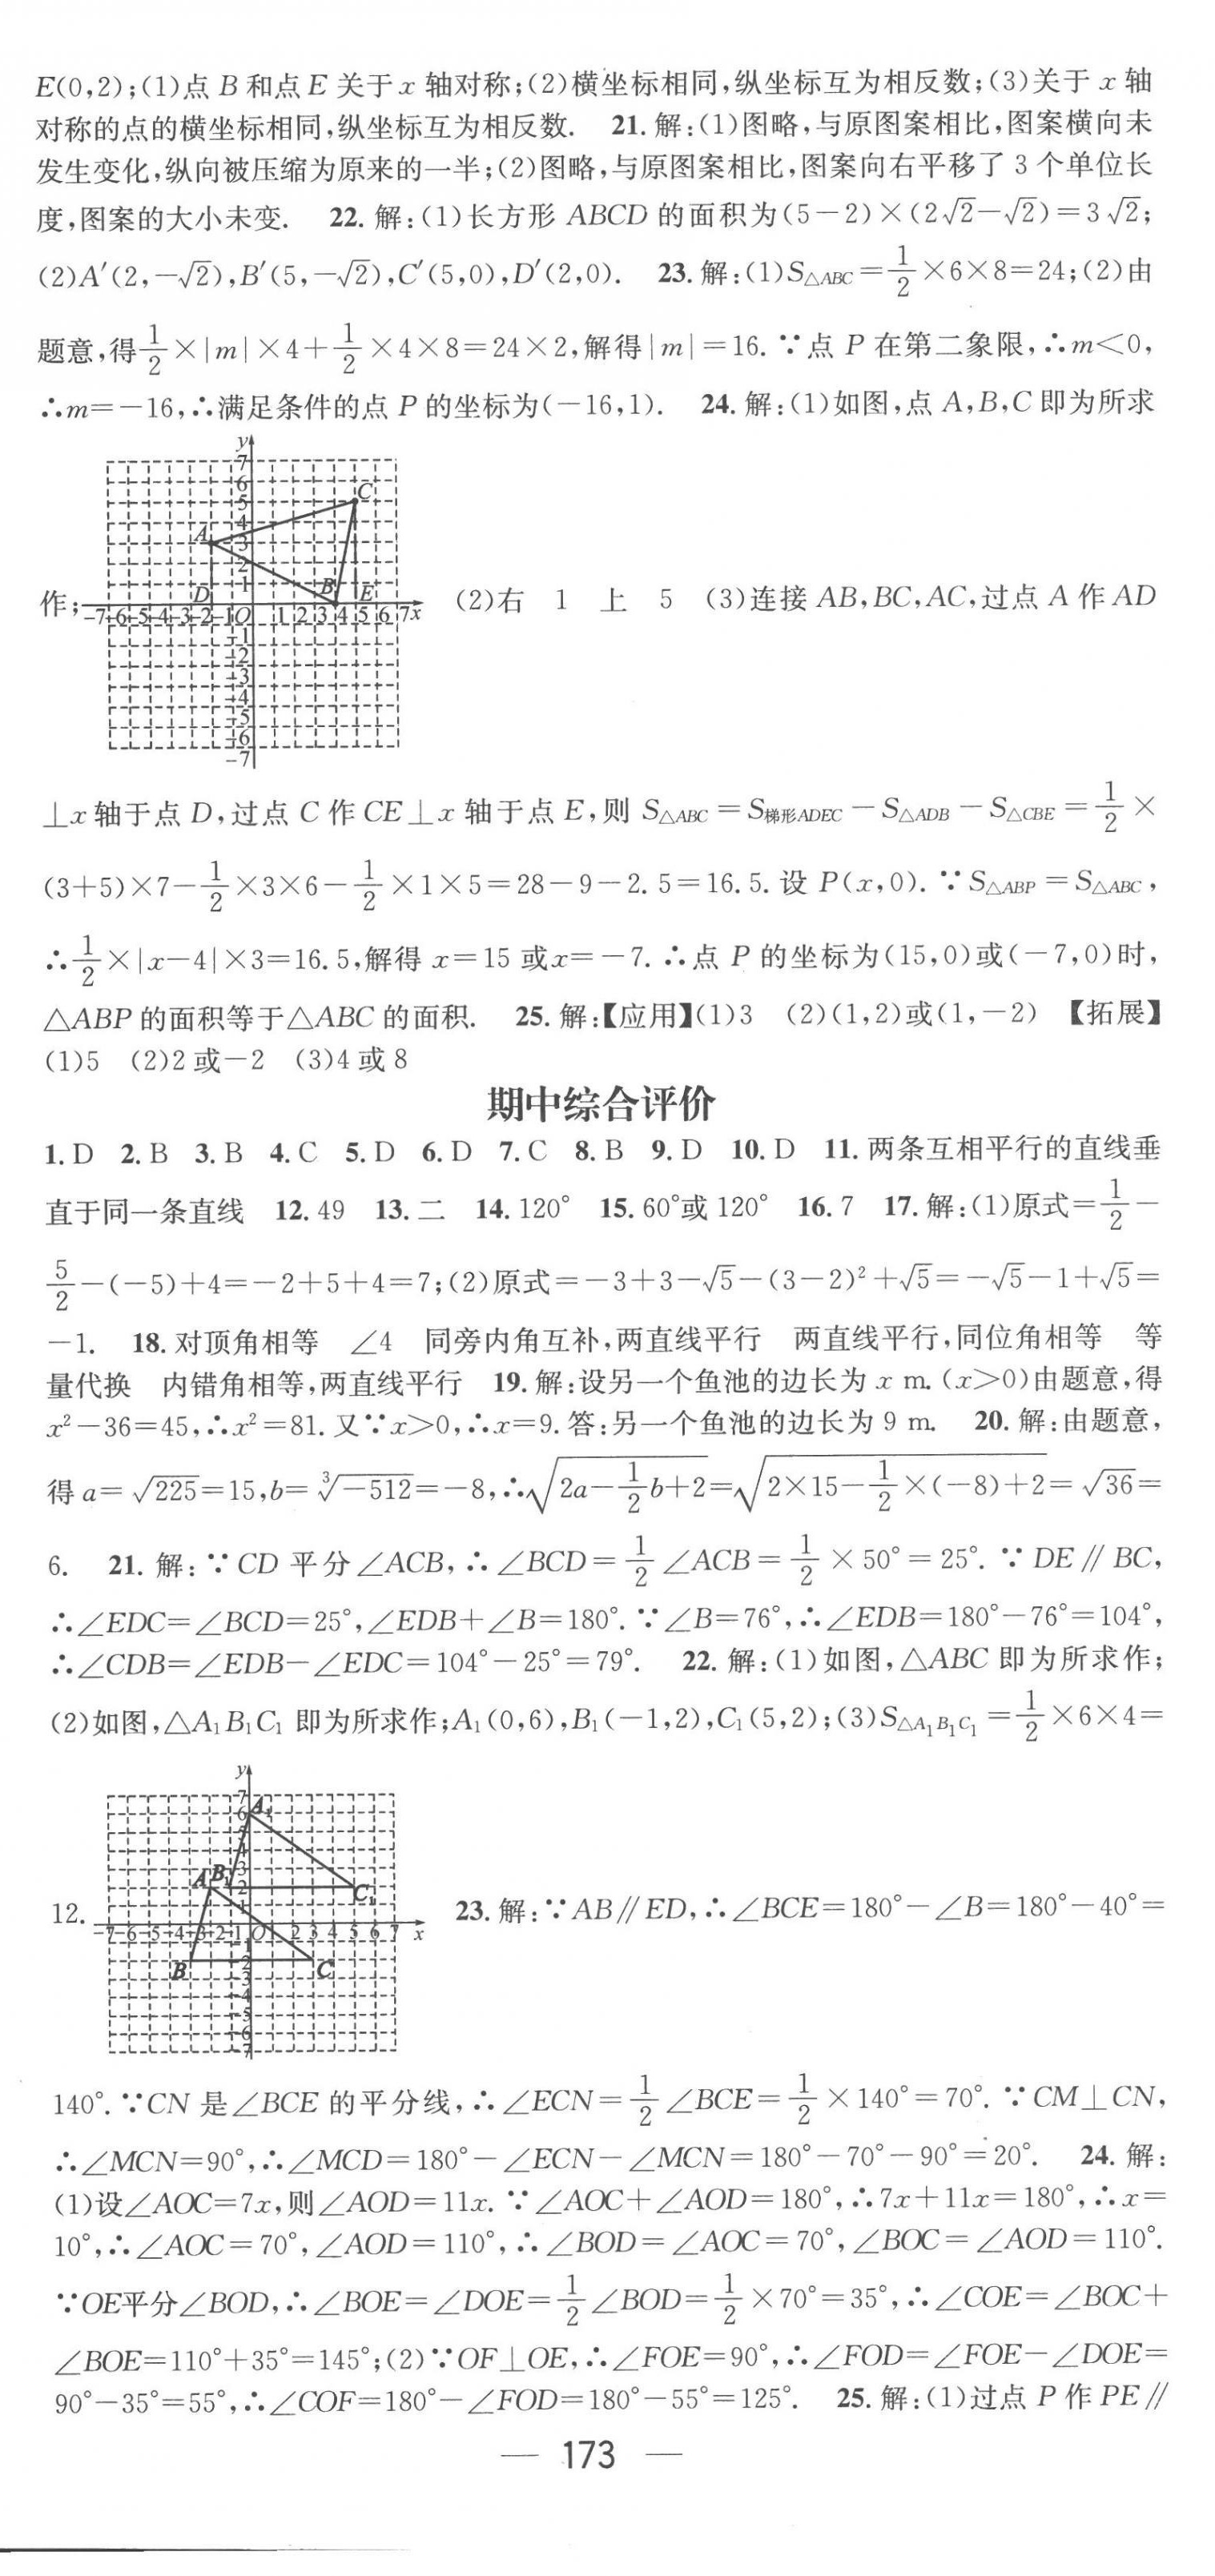 E(0,2);(1)点 B 和点 E 关于 x 轴对称;(2)横坐标相同,纵坐标互为相反数;(3)关于 x 轴
对称的点的横坐标相同,纵坐标互为相反数. 21. 解:(1)图略,与原图案相比,图案横向未
发生变化,纵向被压缩为原来的一半;(2)图略,与原图案相比,图案向右平移了 3 个单位长
度,图案的大小未变. 22. 解:(1)长方形 ABCD 的面积为(5－2)×(2√2－√2)＝3√2;
(2)A′(2,－√2),B′(5,－√2),C′(5,0),D′(2,0). 23. 解:(1)S△ABC＝1/2×6×8＝24;(2)由
题意,得1/2×|m|×4＋1/2×4×8＝24×2,解得|m|＝16. ∵点 P 在第二象限,∴m＜0,
∴m＝－16,∴满足条件的点 P 的坐标为(－16,1). 24. 解:(1)如图,点 A,B,C 即为所求
y
7
6
5
4
3
2
1
A
C
D
B
E
作; －7－6－5－4－3－2－1O 1 2 3 4 5 6 7x (2)右 1 上 5 (3)连接 AB,BC,AC,过点 A 作 AD
－1
－2
－3
－4
－5
－6
－7
⊥x 轴于点 D,过点 C 作 CE⊥x 轴于点 E,则 S△ABC＝S梯形ADEC－S△ADB－S△CBE＝1/2×
(3＋5)×7－1/2×3×6－1/2×1×5＝28－9－2.5＝16.5. 设 P(x,0). ∵S△ABP＝S△ABC,
∴1/2×|x－4|×3＝16.5,解得 x＝15 或x＝－7. ∴点 P 的坐标为(15,0)或(－7,0)时,
△ABP 的面积等于△ABC 的面积. 25. 解:【应用】(1)3 (2)(1,2)或(1,－2) 【拓展】
(1)5 (2)2 或－2 (3)4 或 8
期中综合评价
1. D 2. B 3. B 4. C 5. D 6. D 7. C 8. B 9. D 10. D 11. 两条互相平行的直线垂
直于同一条直线 12. 49 13. 二 14. 120° 15. 60°或 120° 16. 7 17. 解:(1)原式＝1/2－
5/2－(－5)＋4＝－2＋5＋4＝7;(2)原式＝－3＋3－√5－(3－2)²＋√5＝－√5－1＋√5＝
－1. 18. 对顶角相等 ∠4 同旁内角互补,两直线平行 两直线平行,同位角相等 等
量代换 内错角相等,两直线平行 19. 解:设另一个鱼池的边长为 x m. (x＞0)由题意,得
x²－36＝45,∴x²＝81. 又∵x＞0,∴x＝9. 答:另一个鱼池的边长为 9 m. 20. 解:由题意,
得 a＝√225＝15,b＝∛－512＝－8,∴√(2a－1/2b＋2)＝√(2×15－1/2×(－8)＋2)＝√36＝
6. 21. 解:∵CD 平分∠ACB,∴∠BCD＝1/2∠ACB＝1/2×50°＝25°. ∵DE∥BC,
∴∠EDC＝∠BCD＝25°,∠EDB＋∠B＝180°. ∵∠B＝76°,∴∠EDB＝180°－76°＝104°,
∴∠CDB＝∠EDB－∠EDC＝104°－25°＝79°. 22. 解:(1)如图,△ABC 即为所求作;
(2)如图,△A₁B₁C₁ 即为所求作;A₁(0,6),B₁(－1,2),C₁(5,2);(3)S△A₁B₁C₁＝1/2×6×4＝
y
7
6
A₁
3
2
A
B₁
C₁
12. －7－6－5－4－3－2－1O 2 3 4 5 6 7 x 23. 解:∵AB∥ED,∴∠BCE＝180°－∠B＝180°－40°＝
B
C
－1
－2
－3
－4
－5
－6
－7
140°. ∵CN 是∠BCE 的平分线,∴∠ECN＝1/2∠BCE＝1/2×140°＝70°. ∵CM⊥CN,
∴∠MCN＝90°,∴∠MCD＝180°－∠ECN－∠MCN＝180°－70°－90°＝20°. 24. 解:
(1)设∠AOC＝7x,则∠AOD＝11x. ∵∠AOC＋∠AOD＝180°,∴7x＋11x＝180°,∴x＝
10°,∴∠AOC＝70°,∠AOD＝110°,∴∠BOD＝∠AOC＝70°,∠BOC＝∠AOD＝110°.
∵OE平分∠BOD,∴∠BOE＝∠DOE＝1/2∠BOD＝1/2×70°＝35°,∴∠COE＝∠BOC＋
∠BOE＝110°＋35°＝145°;(2)∵OF⊥OE,∴∠FOE＝90°,∴∠FOD＝∠FOE－∠DOE＝
90°－35°＝55°,∴∠COF＝180°－∠FOD＝180°－55°＝125°. 25. 解:(1)过点 P 作 PE∥
— 173 —